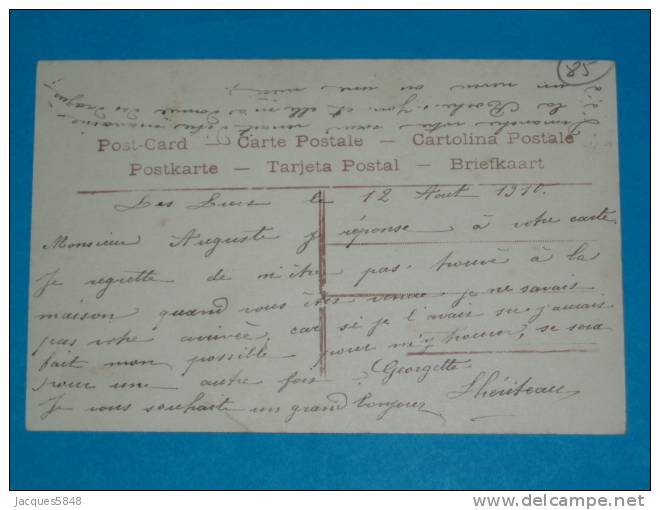 85
Post-Card — Carte Postale — Cartolina Postale
Postkarte — Tarjeta Postal — Briefkaart
Les Lucs le 12 Aout 1910.
Monsieur Auguste je réponse à votre carte
Je regrette de m'être pas trouvé à la
maison quand vous êtes venue je ne savais
pas votre arrivée, car si je l'avais su j'aurais
fait mon possible pour m'y trouver, se sera
pour une autre fois. Georgette
Je vous souhaite un grand bonjour
Dimanche votre sœur
la Roche s. yon et elle m'a donné des
un neveu ou une nièce
Jacques5848
delcampe.net